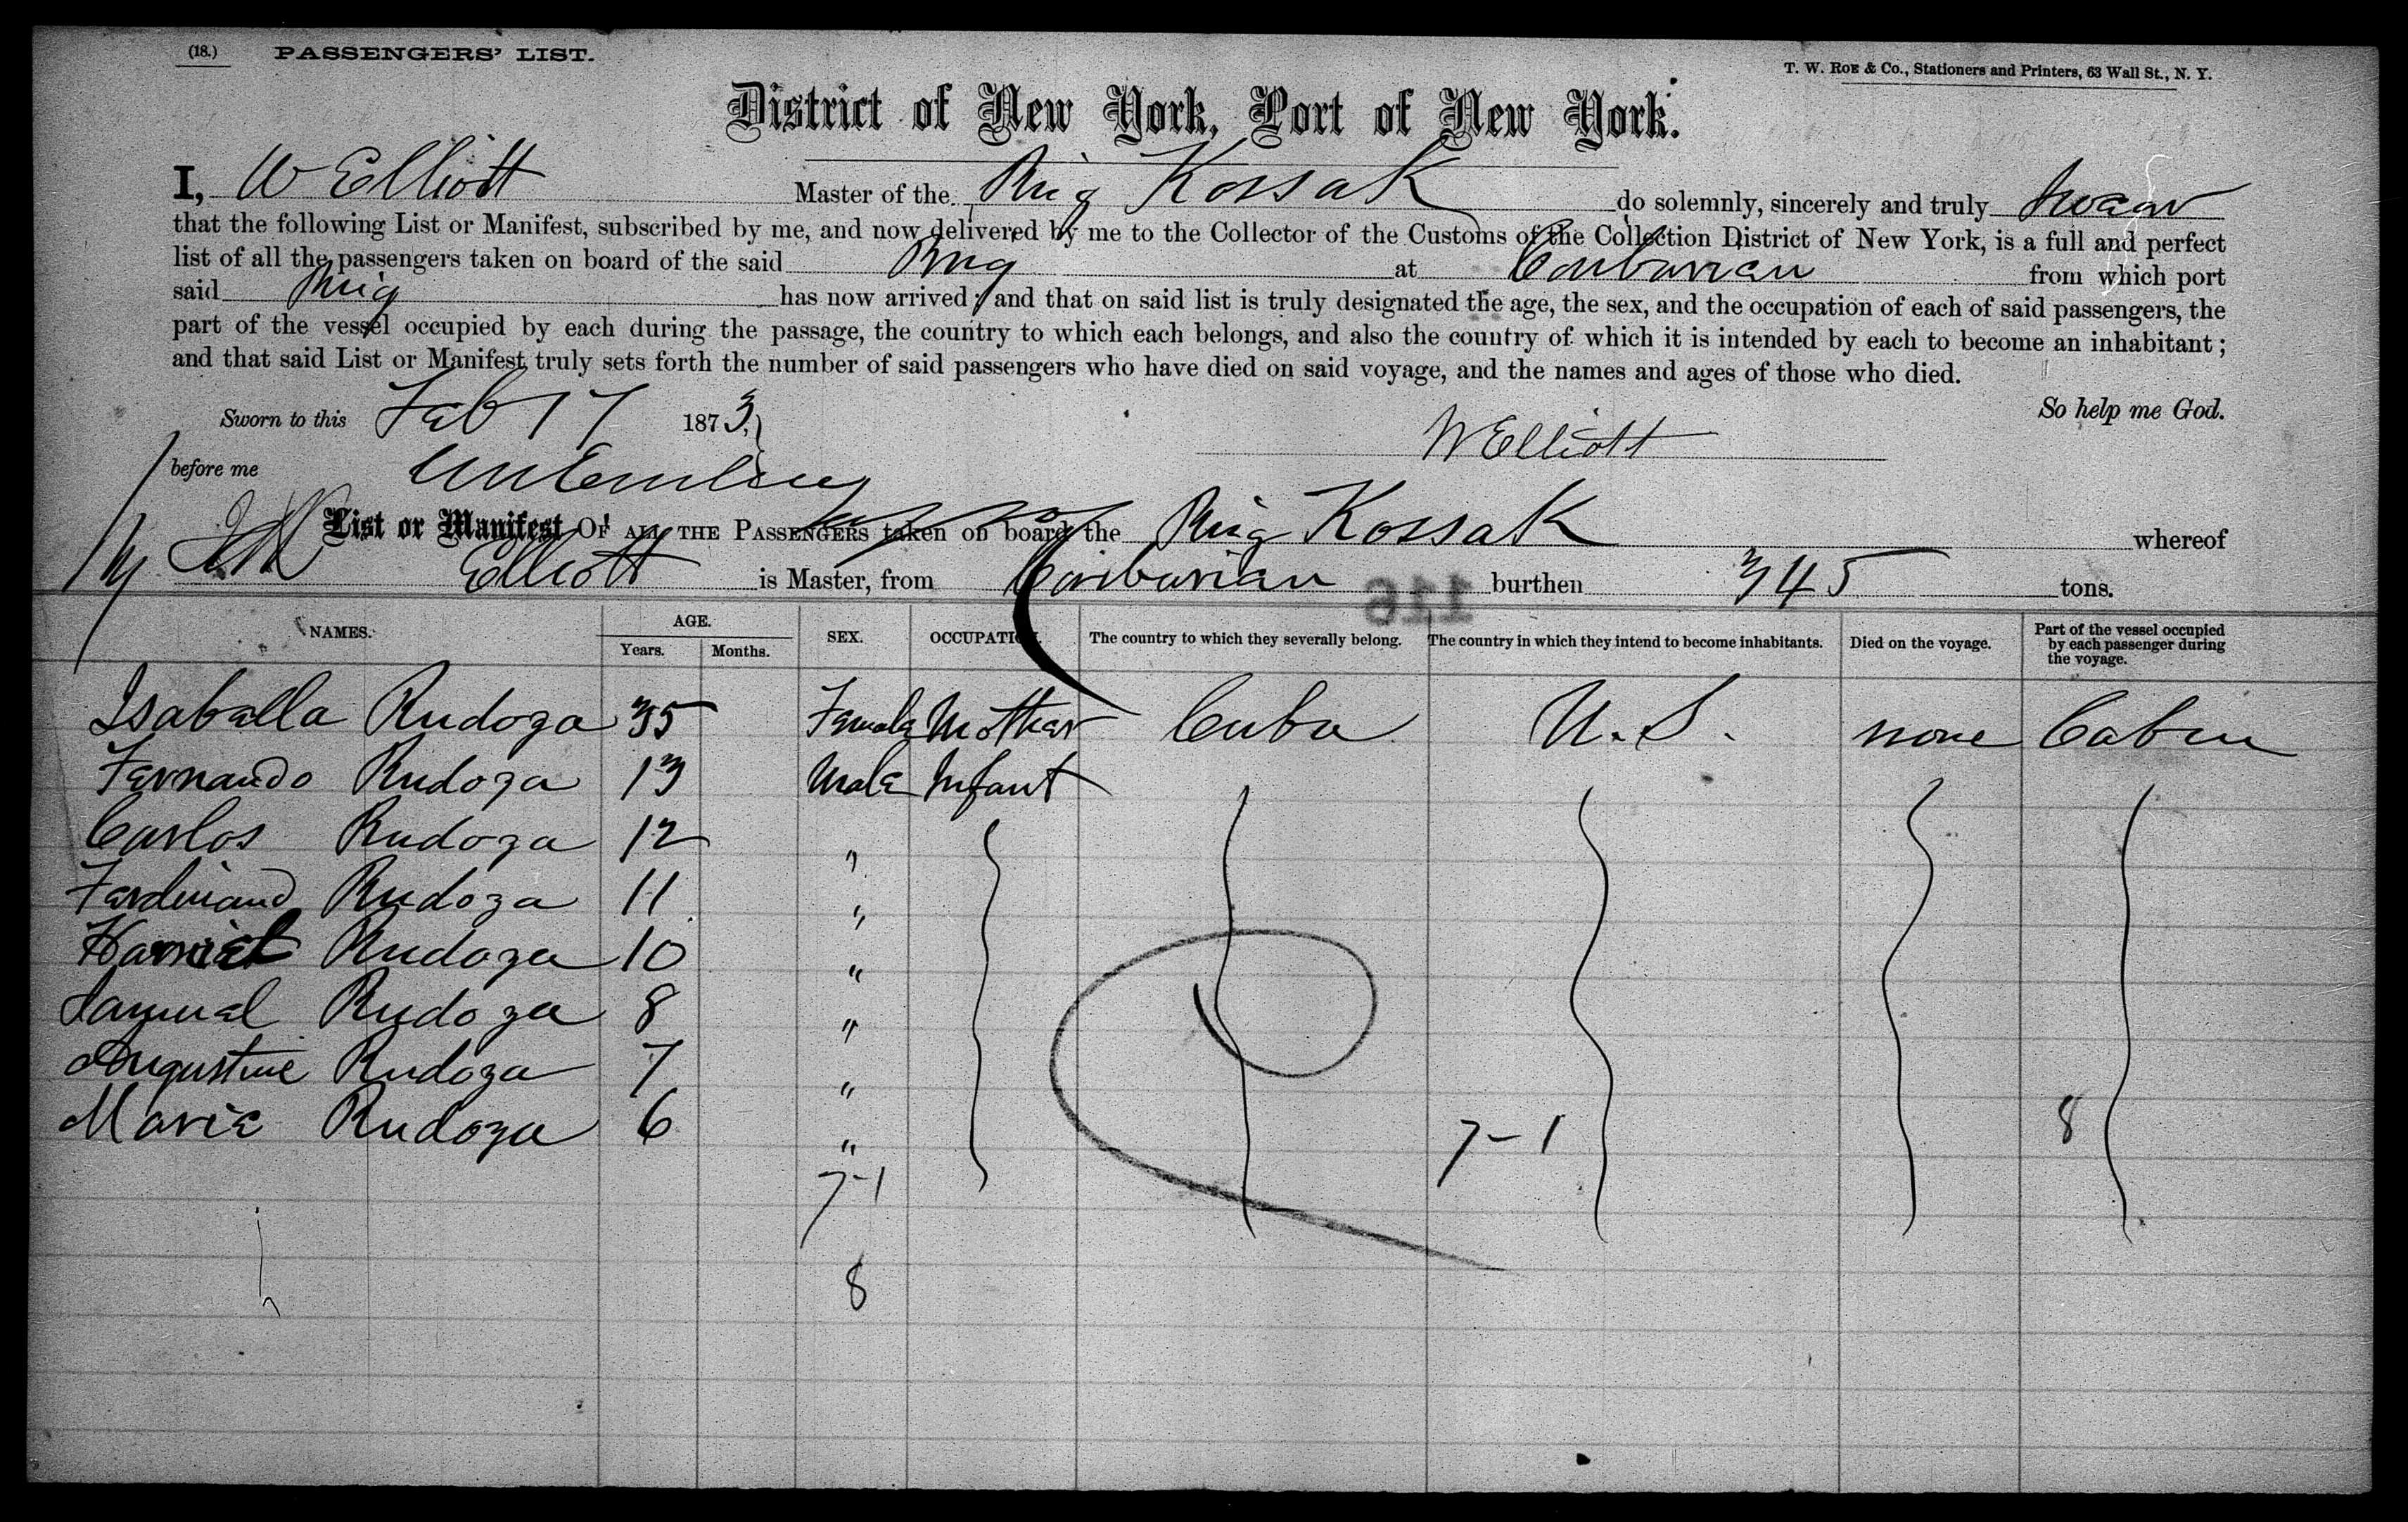 (18.) PASSENGERS' LIST.
T. W. ROE & Co., Stationers and Printers, 63 Wall St., N. Y.
District of New York, Port of New York.
I, W Elliott Master of the Brig Kossak do solemnly, sincerely and truly swear
that the following List or Manifest, subscribed by me, and now delivered by me to the Collector of the Customs of the Collection District of New York, is a full and perfect
list of all the passengers taken on board of the said Brig at Conbarian from which port
said Brig has now arrived; and that on said list is truly designated the age, the sex, and the occupation of each of said passengers, the
part of the vessel occupied by each during the passage, the country to which each belongs, and also the country of which it is intended by each to become an inhabitant;
and that said List or Manifest truly sets forth the number of said passengers who have died on said voyage, and the names and ages of those who died.
So help me God.
Sworn to this Feb 17 1873,
W Elliott
before me
List or Manifest OF ALL THE PASSENGERS taken on board the Brig Kossak whereof
Elliott is Master, from burthen 345 tons.
116
NAMES. AGE. Years. Months. SEX. OCCUPATION. The country to which they severally belong. The country in which they intend to become inhabitants. Died on the voyage. Part of the vessel occupied by each passenger during the voyage.
Isabella Rudoza 35 Female Mother Cuba U. S. none Cabin
Fernando Rudoza 13 Male Infant
Carlos Rudoza 12 "
Ferdinand Rudoza 11 "
Harriet Rudoza 10 "
Samuel Rudoza 8 "
Augustine Rudoza 7 "
Marie Rudoza 6 " 7-1 8
7-1
8